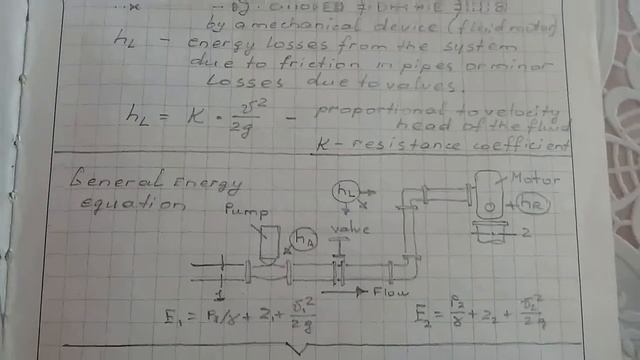 by a mechanical device (fluid motor)
hL - energy losses from the system
due to friction in pipes or minor
losses due to valves.
hL = K · v²/2g - proportional to velocity
head of the fluid
K - resistance coefficient
General Energy
equation
Pump
hA
hL
valve
Motor
hR
2
1
Flow
E₁ = P₁/γ + Z₁ + v₁²/2g
E₂ = P₂/γ + Z₂ + v₂²/2g